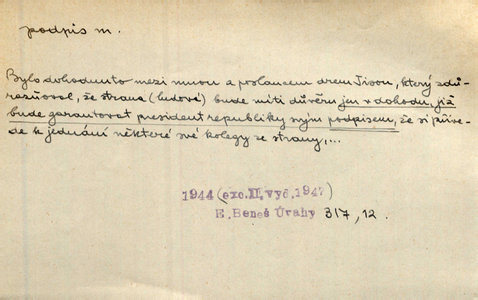 podpis m.
Bylo dohodnuto mezi mnou a poslancem drem Tisou, který zdů-
razňoval, že strana (ludová) bude míti důvěru jen v dohodu, již
bude garantovat president republiky svým podpisem, že si přive-
de k jednání některé své kolegy ze strany,...
1944 (exc.II, vyd.1947)
E. Beneš Úvahy 317, 12.